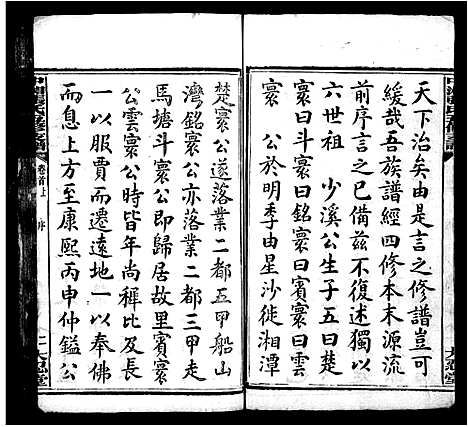 天下治矣由是言之修譜豈可
緩哉吾族譜經四修本末源流
前序言之已備茲不復述獨以
六世祖 少溪公生子五曰楚
寰曰灣寰曰銘寰曰賓寰曰雲
寰公於明季由星沙徙湘潭
楚寰公遂落業二都五甲船山
灣銘寰公亦落業二都三甲走
馬塘斗寰公即歸居故里賓寰
公雲寰公時皆年尚稺比及長
一以服賈而遷遠地一以奉佛
而息上方至康熙丙申仲鎰公
卷首上 序 二